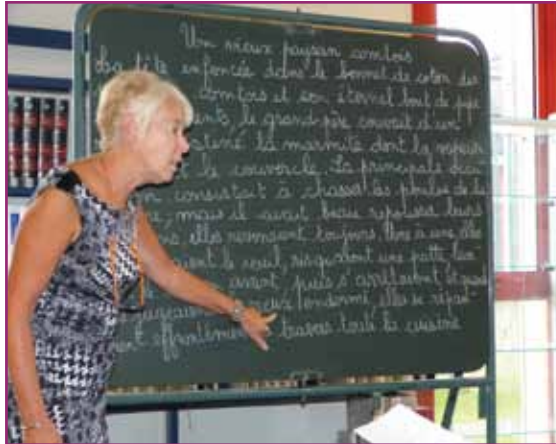 Un vieux paysan comtois
La tête enfoncée dans le bonnet de coton des
comtois et son éternel bout de pipe
dents, le grand-père couvait d'un
obstiné la marmite dont la vapeur
le couvercle. La principale
consistait à chasser les poules de la
mais il avait beau repousser leurs
elles revenaient toujours. Une à une elles
le seuil, risquaient une patte, l'en
avant, puis s'arrêtaient et quand
vieux endormi, elles se répan-
effrontément à travers toute la cuisine